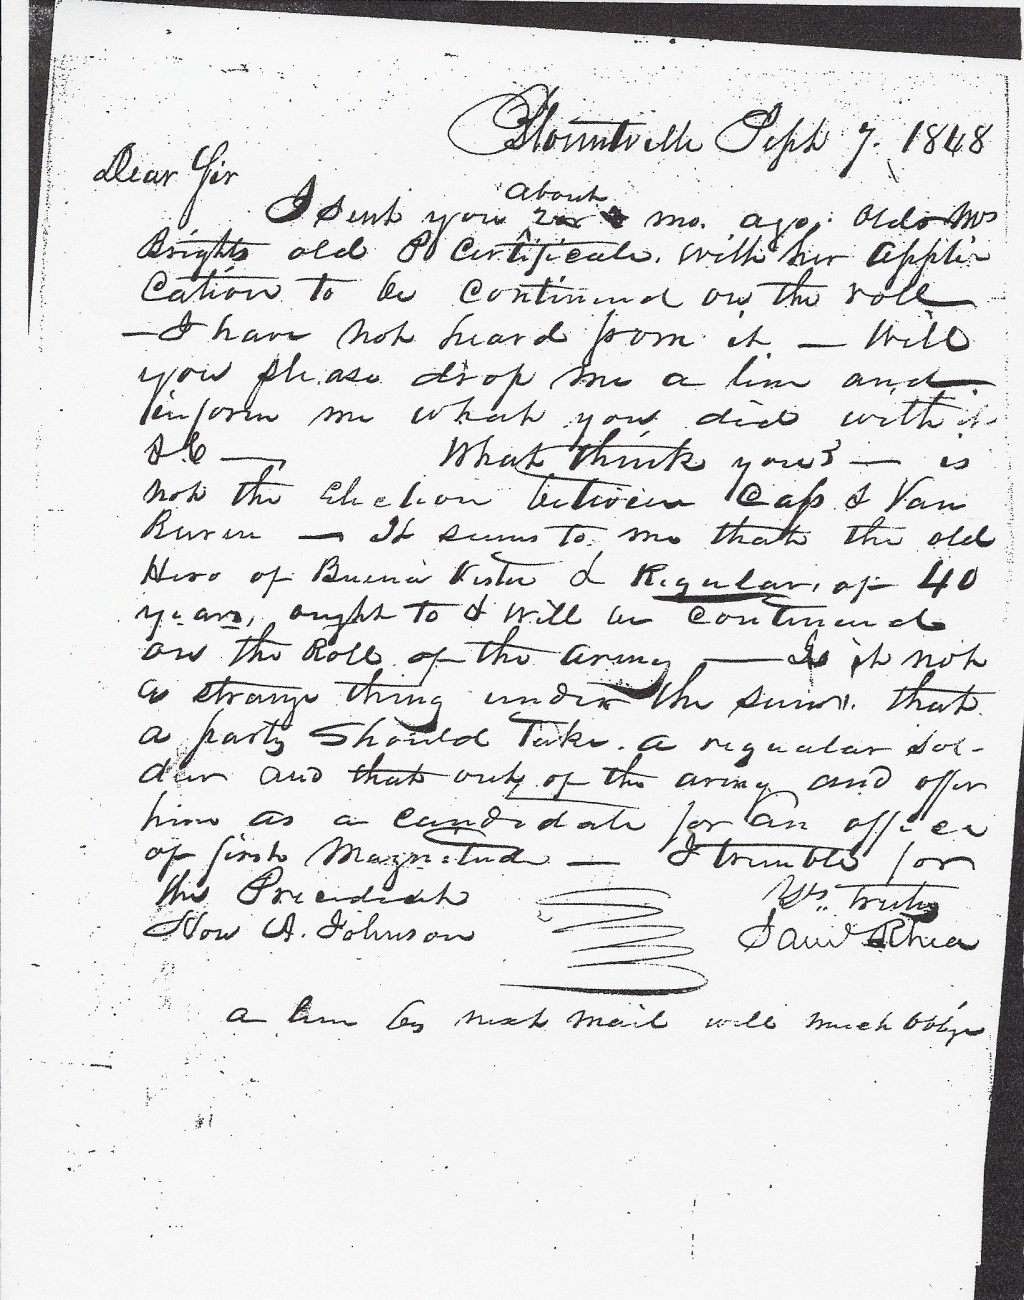 Blountville Sept 7. 1848
Dear Sir
About
I sent you 2 mo. ago. Old Mrs
Brights old P Certificate. with her appli-
cation to be Continued on the roll
— I have not heard from it — Will
you please drop me a line and
inform me what you did with it
&C — What think you? — is
not the Election between Cass & Van
Buren — It seems to me that the old
Hero of Buena Vista & Regular, of 40
years, ought to & will be Continued
on the Roll of the army — Is it not
a strange thing under the sun. that
a party should Take. a regular Sol-
dier and that out of the army and offer
him as a candidate for an office
of first Magnitude — I tremble for
the President Yrs.. truly
Hon A. Johnson Saml Rhea
a line by next mail will much oblige